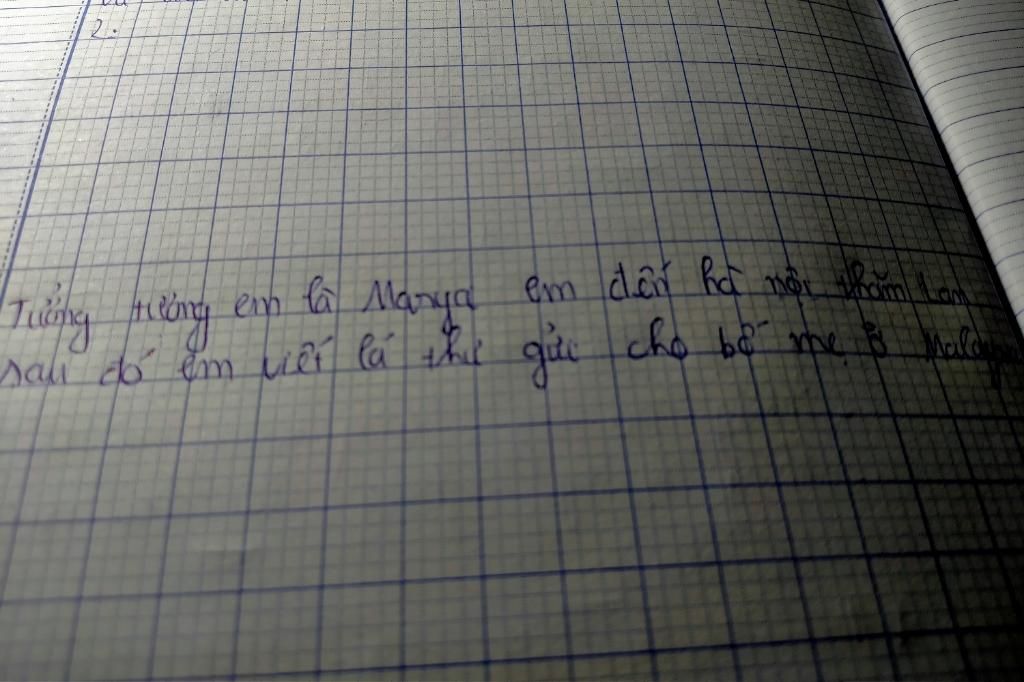 2.
Tưởng tượng em là Manya em đến hà nội thăm Lan
sau đó em viết lá thư gửi cho bố mẹ ở